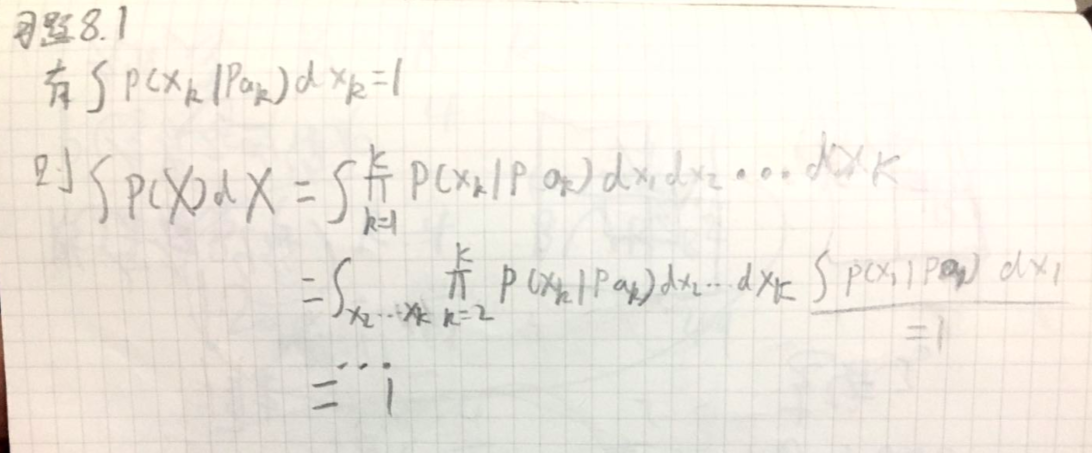 习题8.1
有∫P(x_k|Pa_k)dx_k=1
则∫P(X)dX=∫∏_{k=1}^{K}P(x_k|Pa_k)dx_1dx_2...dx_K
=∫_{x_2...x_K}∏_{k=2}^{K}P(x_k|Pa_k)dx_2...dx_K∫P(x_1|Pa_1)dx_1
=1
=...1